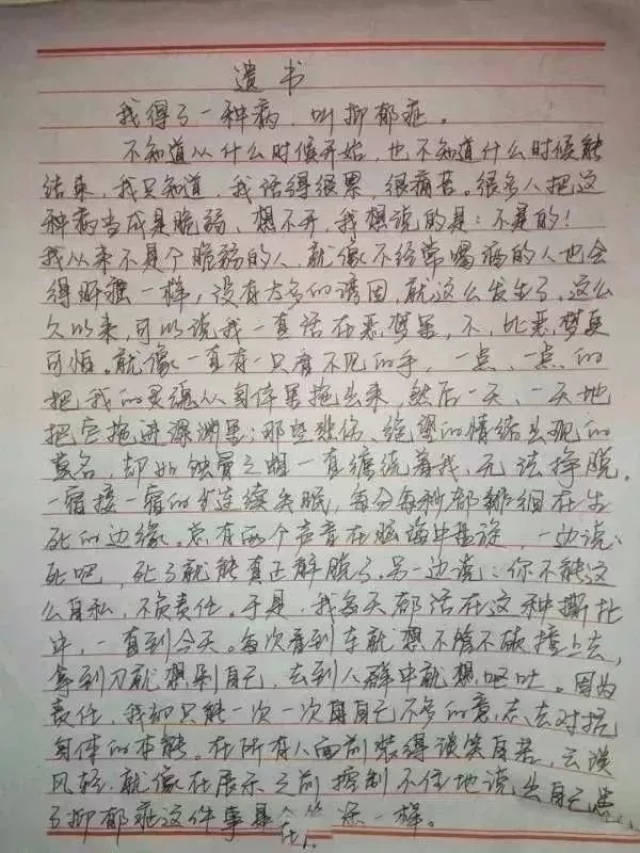 遗书
我得了一种病，叫抑郁症。
不知道从什么时候开始，也不知道什么时候能
结束，我只知道，我活得很累，很痛苦。很多人把这
种病当成是脆弱、想不开，我想说的是：不是的！
我从来不是个脆弱的人，就像不经常喝酒的人也会
得肝癌一样，没有太多的诱因，就这么发生了。这么
久以来，可以说我一直活在恶梦里，不，比恶梦更
可怕。就像一直有一只看不见的手，一点、一点的
把我的灵魂从身体里拖出来，然后一天、一天地
把它拖进深渊里；那些悲伤、绝望的情绪出现的
莫名，却如蚀骨之蛆一直缠绕着我，无法挣脱。
一宿接一宿的连续失眠，每分每秒都徘徊在生
死的边缘。总有两个声音在脑海中盘旋，一边说：
死吧，死了就能真正解脱了，另一边说：你不能这
么自私，不负责任。于是，我每天都活在这种撕扯
中，一直到今天。每次看到车就想不管不顾撞上去，
拿到刀就想剁自己，去到人群中就想呕吐。因为
责任，我却只能一次一次用自己不多的意志去对抗
身体的本能。在所有人面前装得谈笑自若，云淡
风轻，就像在展示之前控制不住地说出自己患
了抑郁症这件事是 一样。